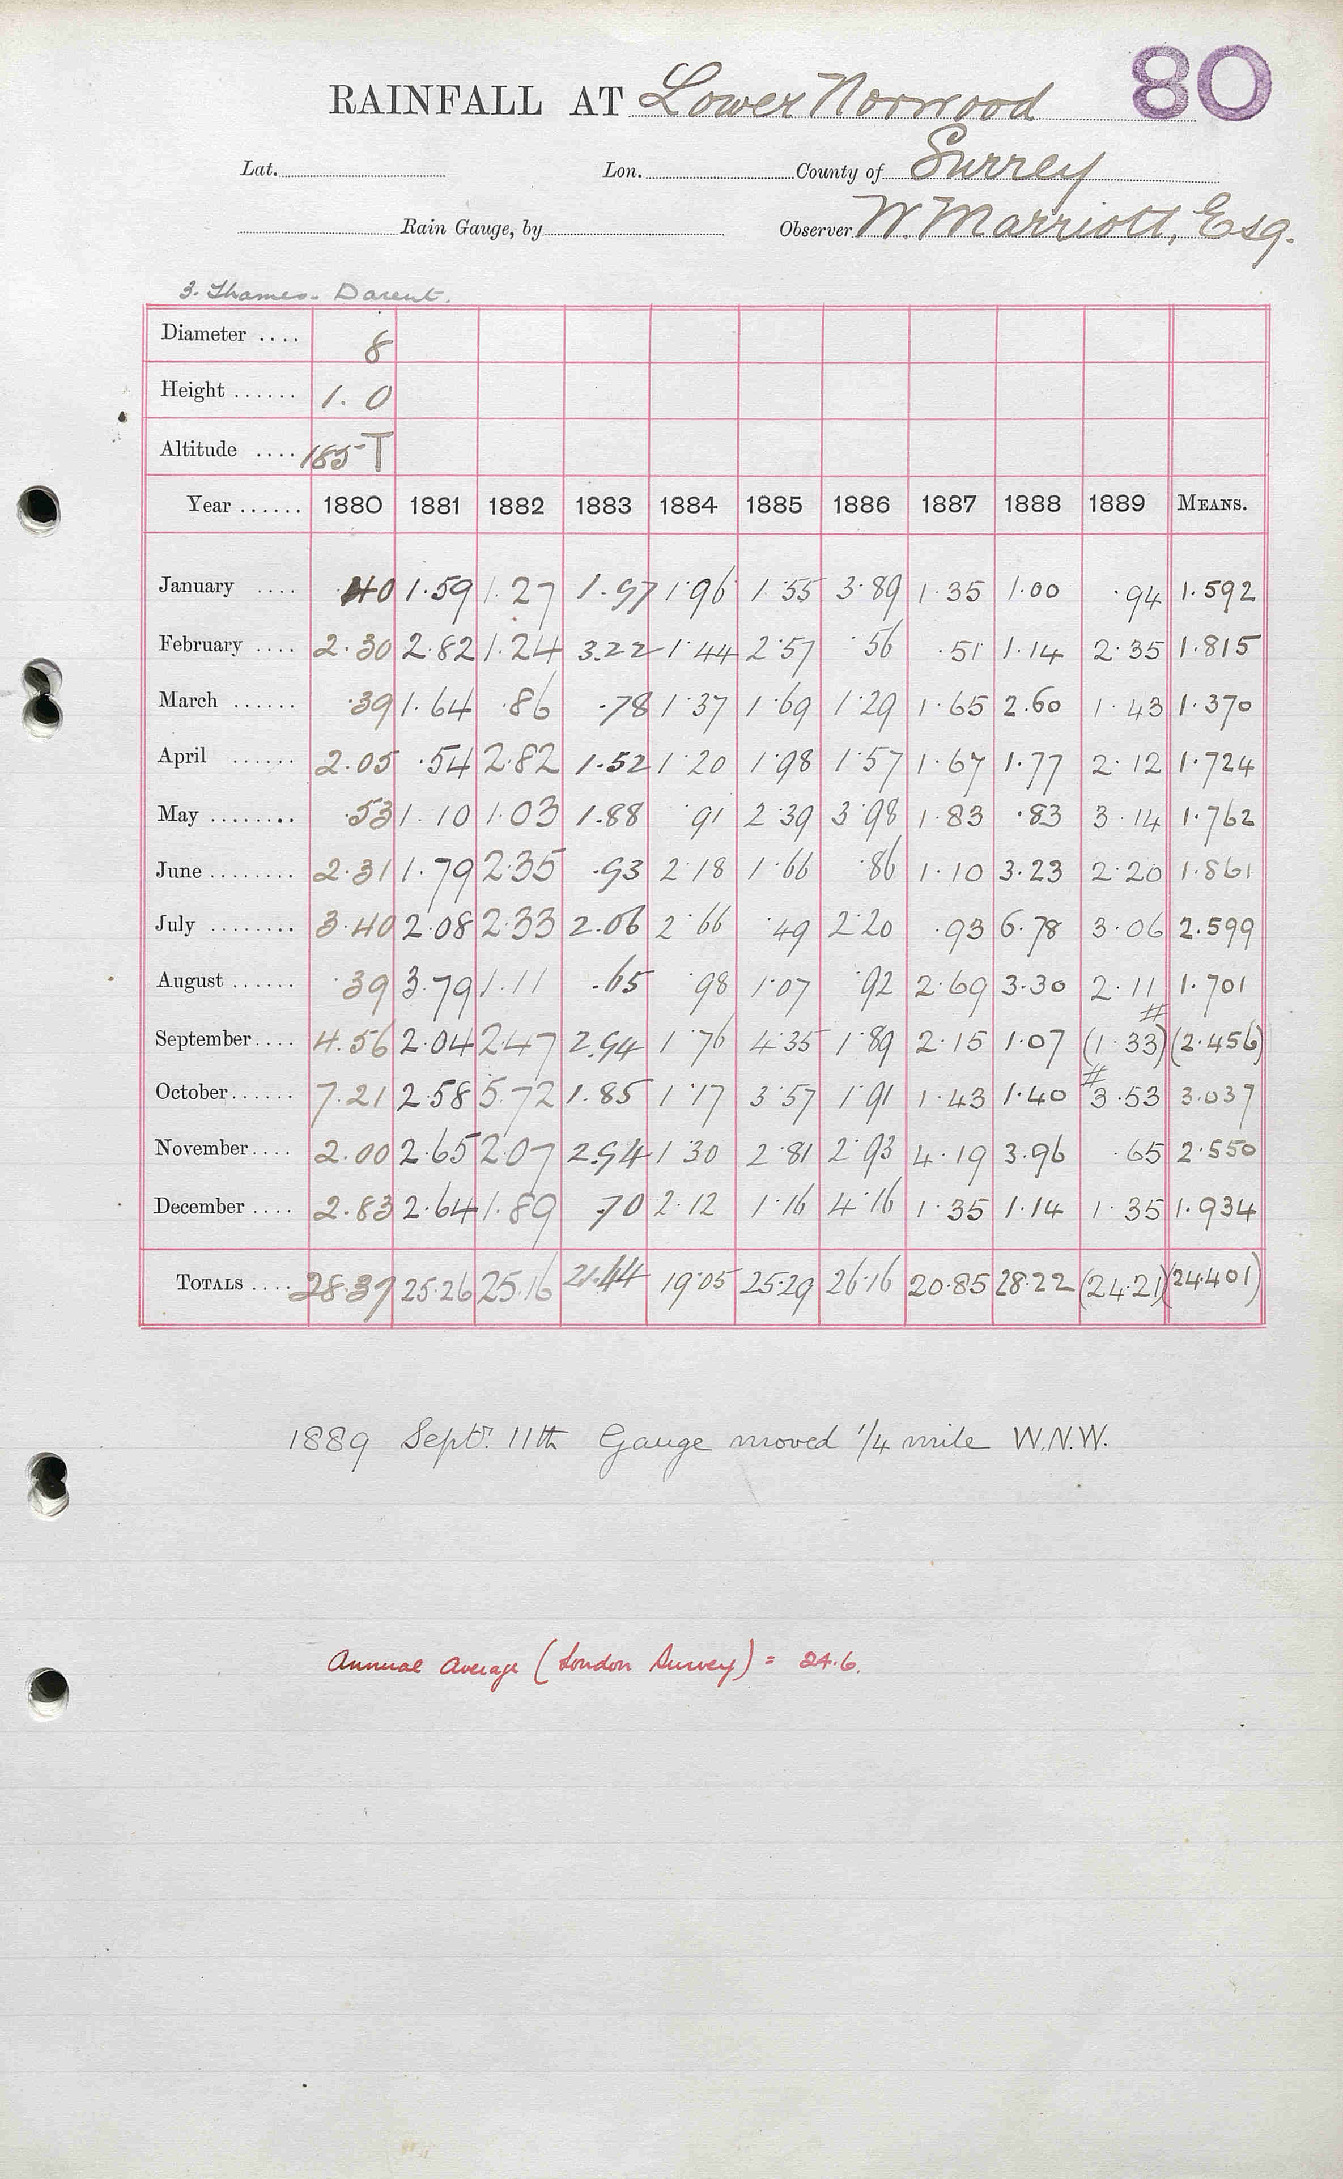 80
RAINFALL AT Lower Norwood
Lat. Lon. County of Surrey
Rain Gauge, by Observer W. Marriott, Esq.
3. Thames - Darent.
Diameter .... 8
Height ...... 1. 0
Altitude .... 185 T
Year ...... 1880 1881 1882 1883 1884 1885 1886 1887 1888 1889 MEANS.
January .... .40 1.59 1.27 1.97 1.96 1.55 3.89 1.35 1.00 .94 1.592
February .... 2.30 2.82 1.24 3.22 1.44 2.57 .56 .51 1.14 2.35 1.815
March ...... .39 1.64 .86 .78 1.37 1.69 1.29 1.65 2.60 1.43 1.370
April ...... 2.05 .54 2.82 1.52 1.20 1.98 1.57 1.67 1.77 2.12 1.724
May ........ .53 1.10 1.03 1.88 .91 2.39 3.98 1.83 .83 3.14 1.762
June ........ 2.31 1.79 2.35 .93 2.18 1.66 .86 1.10 3.23 2.20 1.861
July ........ 3.40 2.08 2.33 2.06 2.66 .49 2.20 .93 6.78 3.06 2.599
August ...... .39 3.79 1.11 .65 .98 1.07 .92 2.69 3.30 2.11 1.701
September .... 4.56 2.04 2.47 2.94 1.76 4.35 1.89 2.15 1.07 (1.33)# (2.456)
October ...... 7.21 2.58 5.72 1.85 1.17 3.57 1.91 1.43 1.40 #3.53 3.037
November .... 2.00 2.65 2.07 2.94 1.30 2.81 2.93 4.19 3.96 .65 2.550
December .... 2.83 2.64 1.89 .70 2.12 1.16 4.16 1.35 1.14 1.35 1.934
TOTALS .... 28.37 25.26 25.16 21.44 19.05 25.29 26.16 20.85 28.22 (24.21) (24.401)
1889 Septr. 11th Gauge moved 1/4 mile W.N.W.
Annual Average (London Survey) = 24.6.